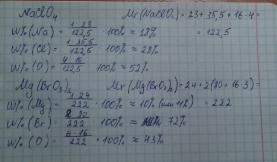 NaClO₄ Mr(NaClO₄) = 23 + 35,5 + 16·4 =
W%(Na) = 1·23/122,5 · 100% = 19% = 122,5
W%(Cl) = 1·35,5/122,5 · 100% = 29%
W%(O) = 4·16/122,5 · 100% = 52%
Mg(BrO₃)₂ Mr(Mg(BrO₃)₂) = 24 + 2(80 + 16·3) =
W%(Mg) = 1·24/222 · 100% ≈ 10% = 222
W%(Br) = 80/222 · 100% = 72%
W%(O) = 6·16/222 · 100% ≈ 43%